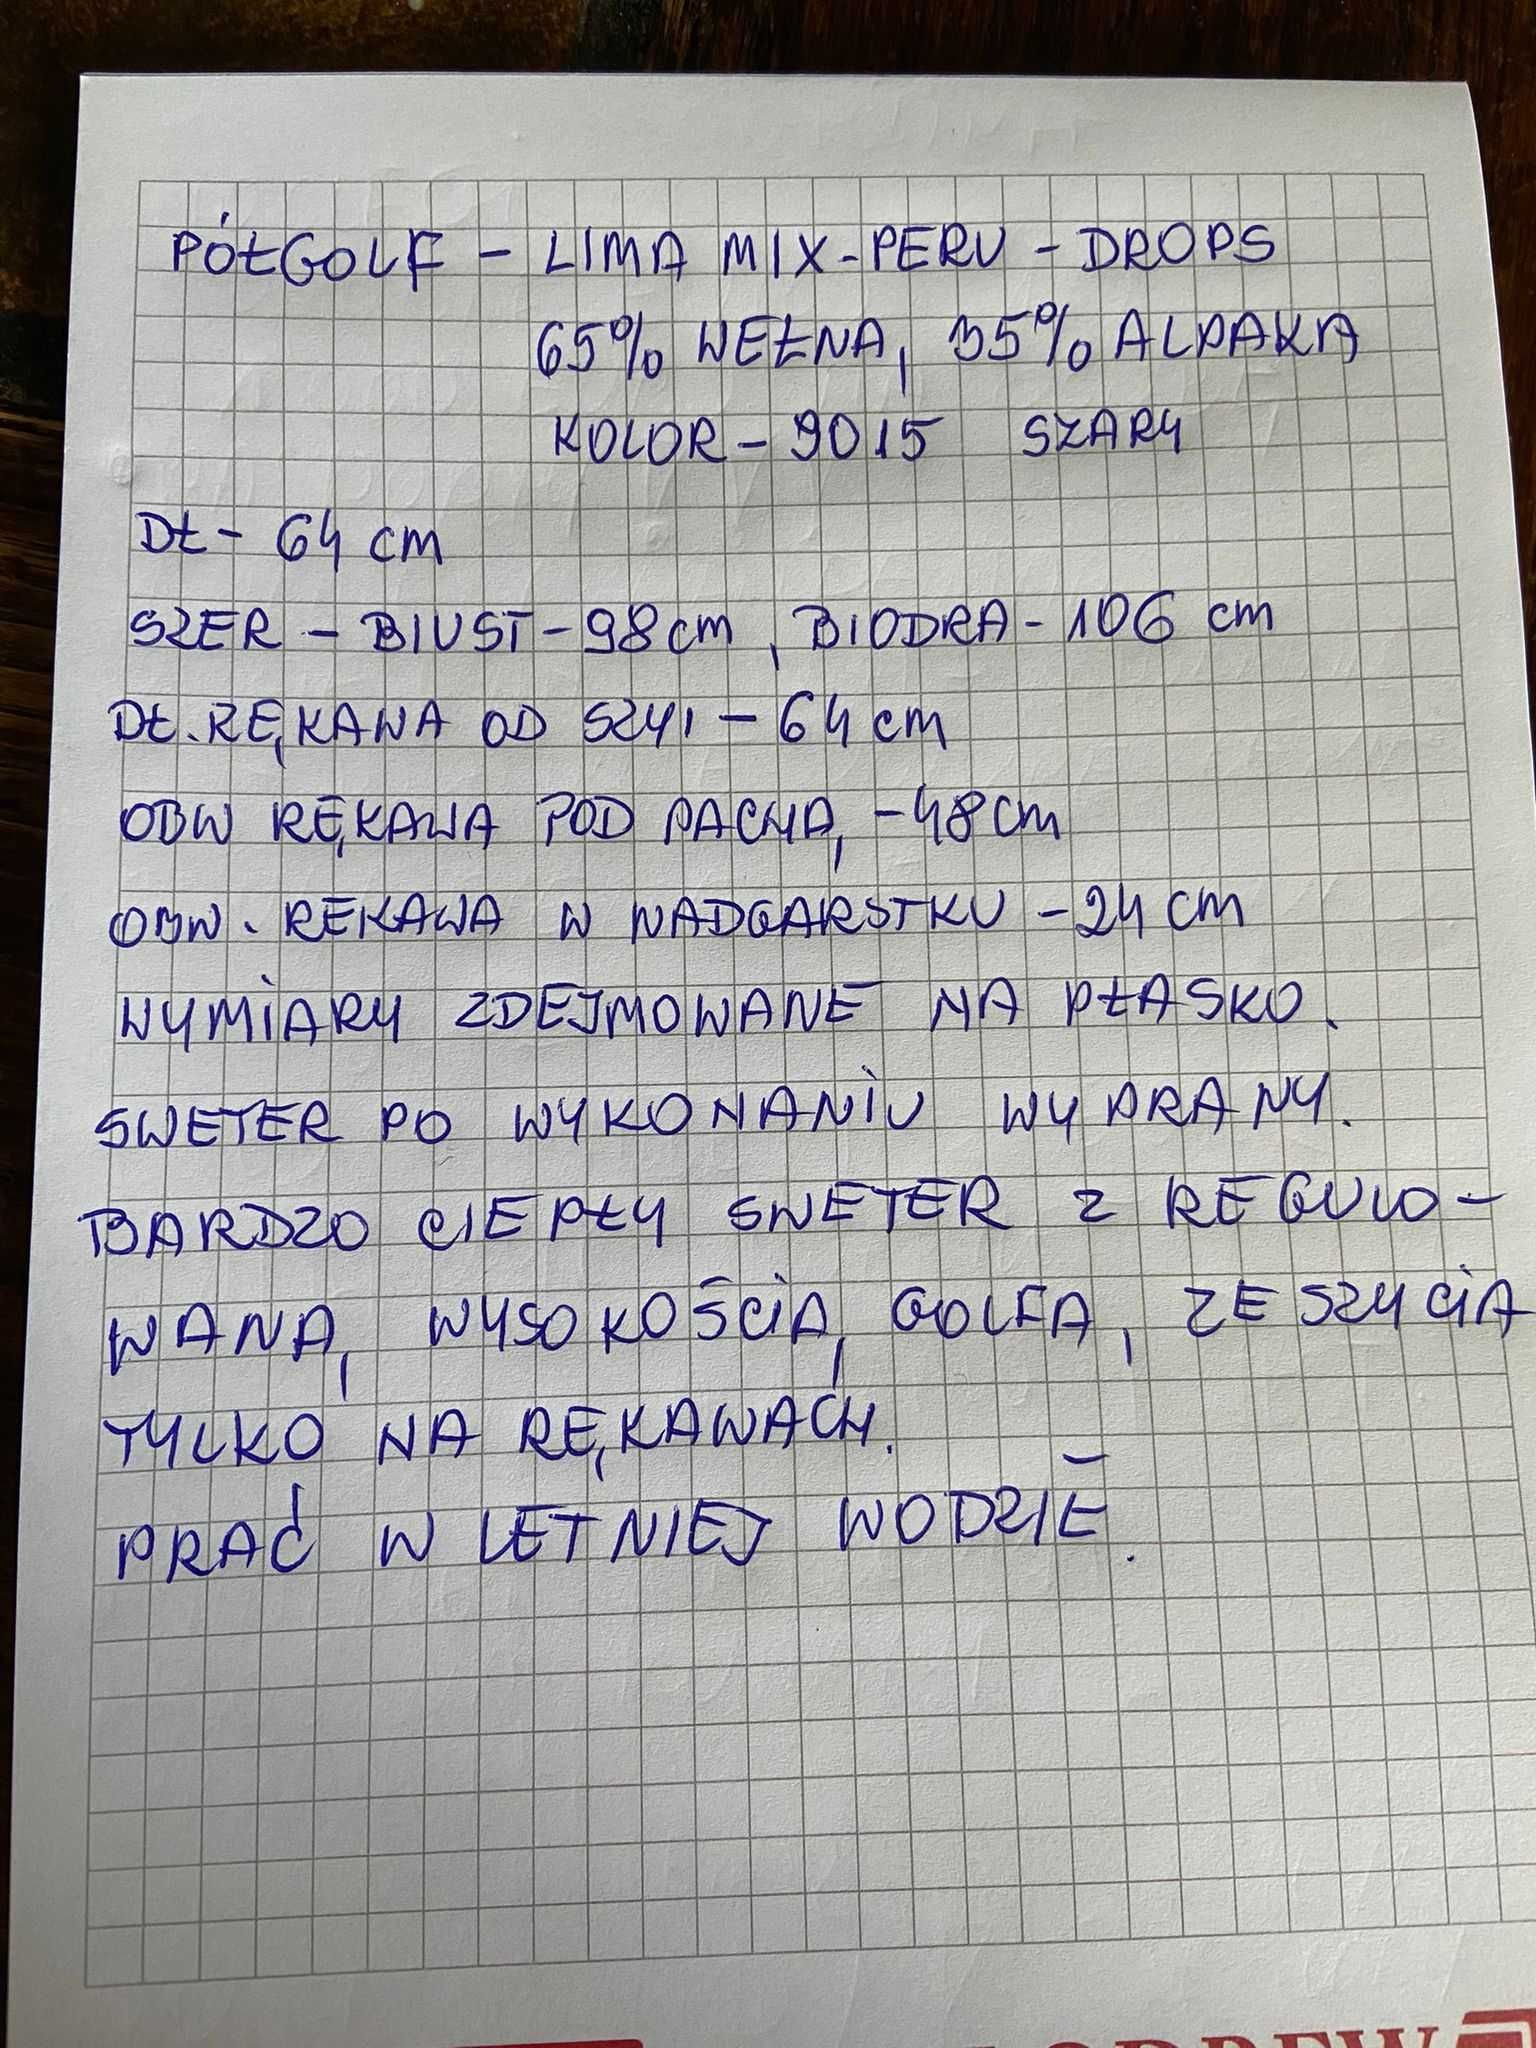 PÓŁGOLF - LIMA MIX-PERU - DROPS
65% WEŁNA, 35% ALPAKA
KOLOR - 9015 SZARY
DŁ - 64 cm
SZER - BIUST - 98 cm, BIODRA - 106 cm
DŁ. RĘKAWA OD SZYI - 64 cm
OBW RĘKAWA POD PACHĄ - 48 cm
OBW. REKAWA W NADGARSTKU - 24 cm
WYMIARY ZDEJMOWANE NA PŁASKO.
SWETER PO WYKONANIU WYPRANY.
BARDZO CIEPŁY SWETER Z REGULO-
WANĄ WYSOKOŚCIĄ GOLFA, ZESZYCIA
TYLKO NA RĘKAWACH.
PRAĆ W LETNIEJ WODZIE.